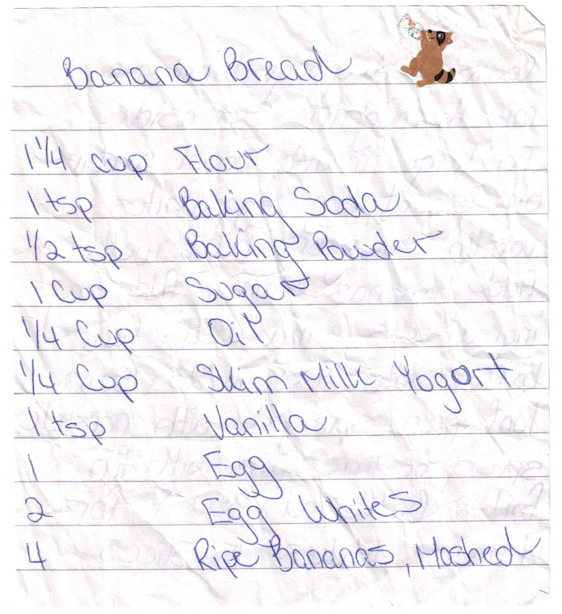 Banana Bread
1 1/4 cup Flour
1 tsp Baking Soda
1/2 tsp Baking Powder
1 Cup Sugar
1/4 Cup Oil
1/4 Cup Skim Milk Yogort
1 tsp Vanilla
1 Egg
2 Egg Whites
4 Ripe Bananas, Mashed